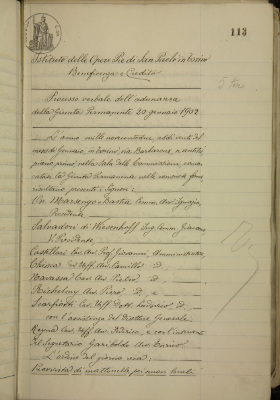 113
Istituto delle Opere Pie di San Paolo in Torino
Beneficenza e Credito
Processo verbale dell'adunanza
della Giunta Permanente 20 gennaio 1902.
L'anno mille novecentodue, addì venti del
mese di Gennaio, in Torino, via Barbaroux, n. ventitre,
piano primo, nella Sala delle Commissioni, convo-
catasi la Giunta Permanente nelle
risultano presenti i Signori:
Comm. Avv.
Presidente
Salvadori di Wiesenhoff Ing. Comm. Giacomo
V. Presidente
Castellari Cav. Avv. Prof. Giovanni Amministratore
Chiesa Cav. Uff. Avv. Camillo id.
Ravassa Cav. Avv. Pietro id.
Richelmy Cav. Avv. Piero id.
Scarfiotti Cav. Uff. Dott. Lodovico id.
con l'assistenza del Direttore Generale
Cav. Uff. Avv. Federico, e con l'intervento
del Segretario Garibaldi Avv.
L'ordine del giorno reca: